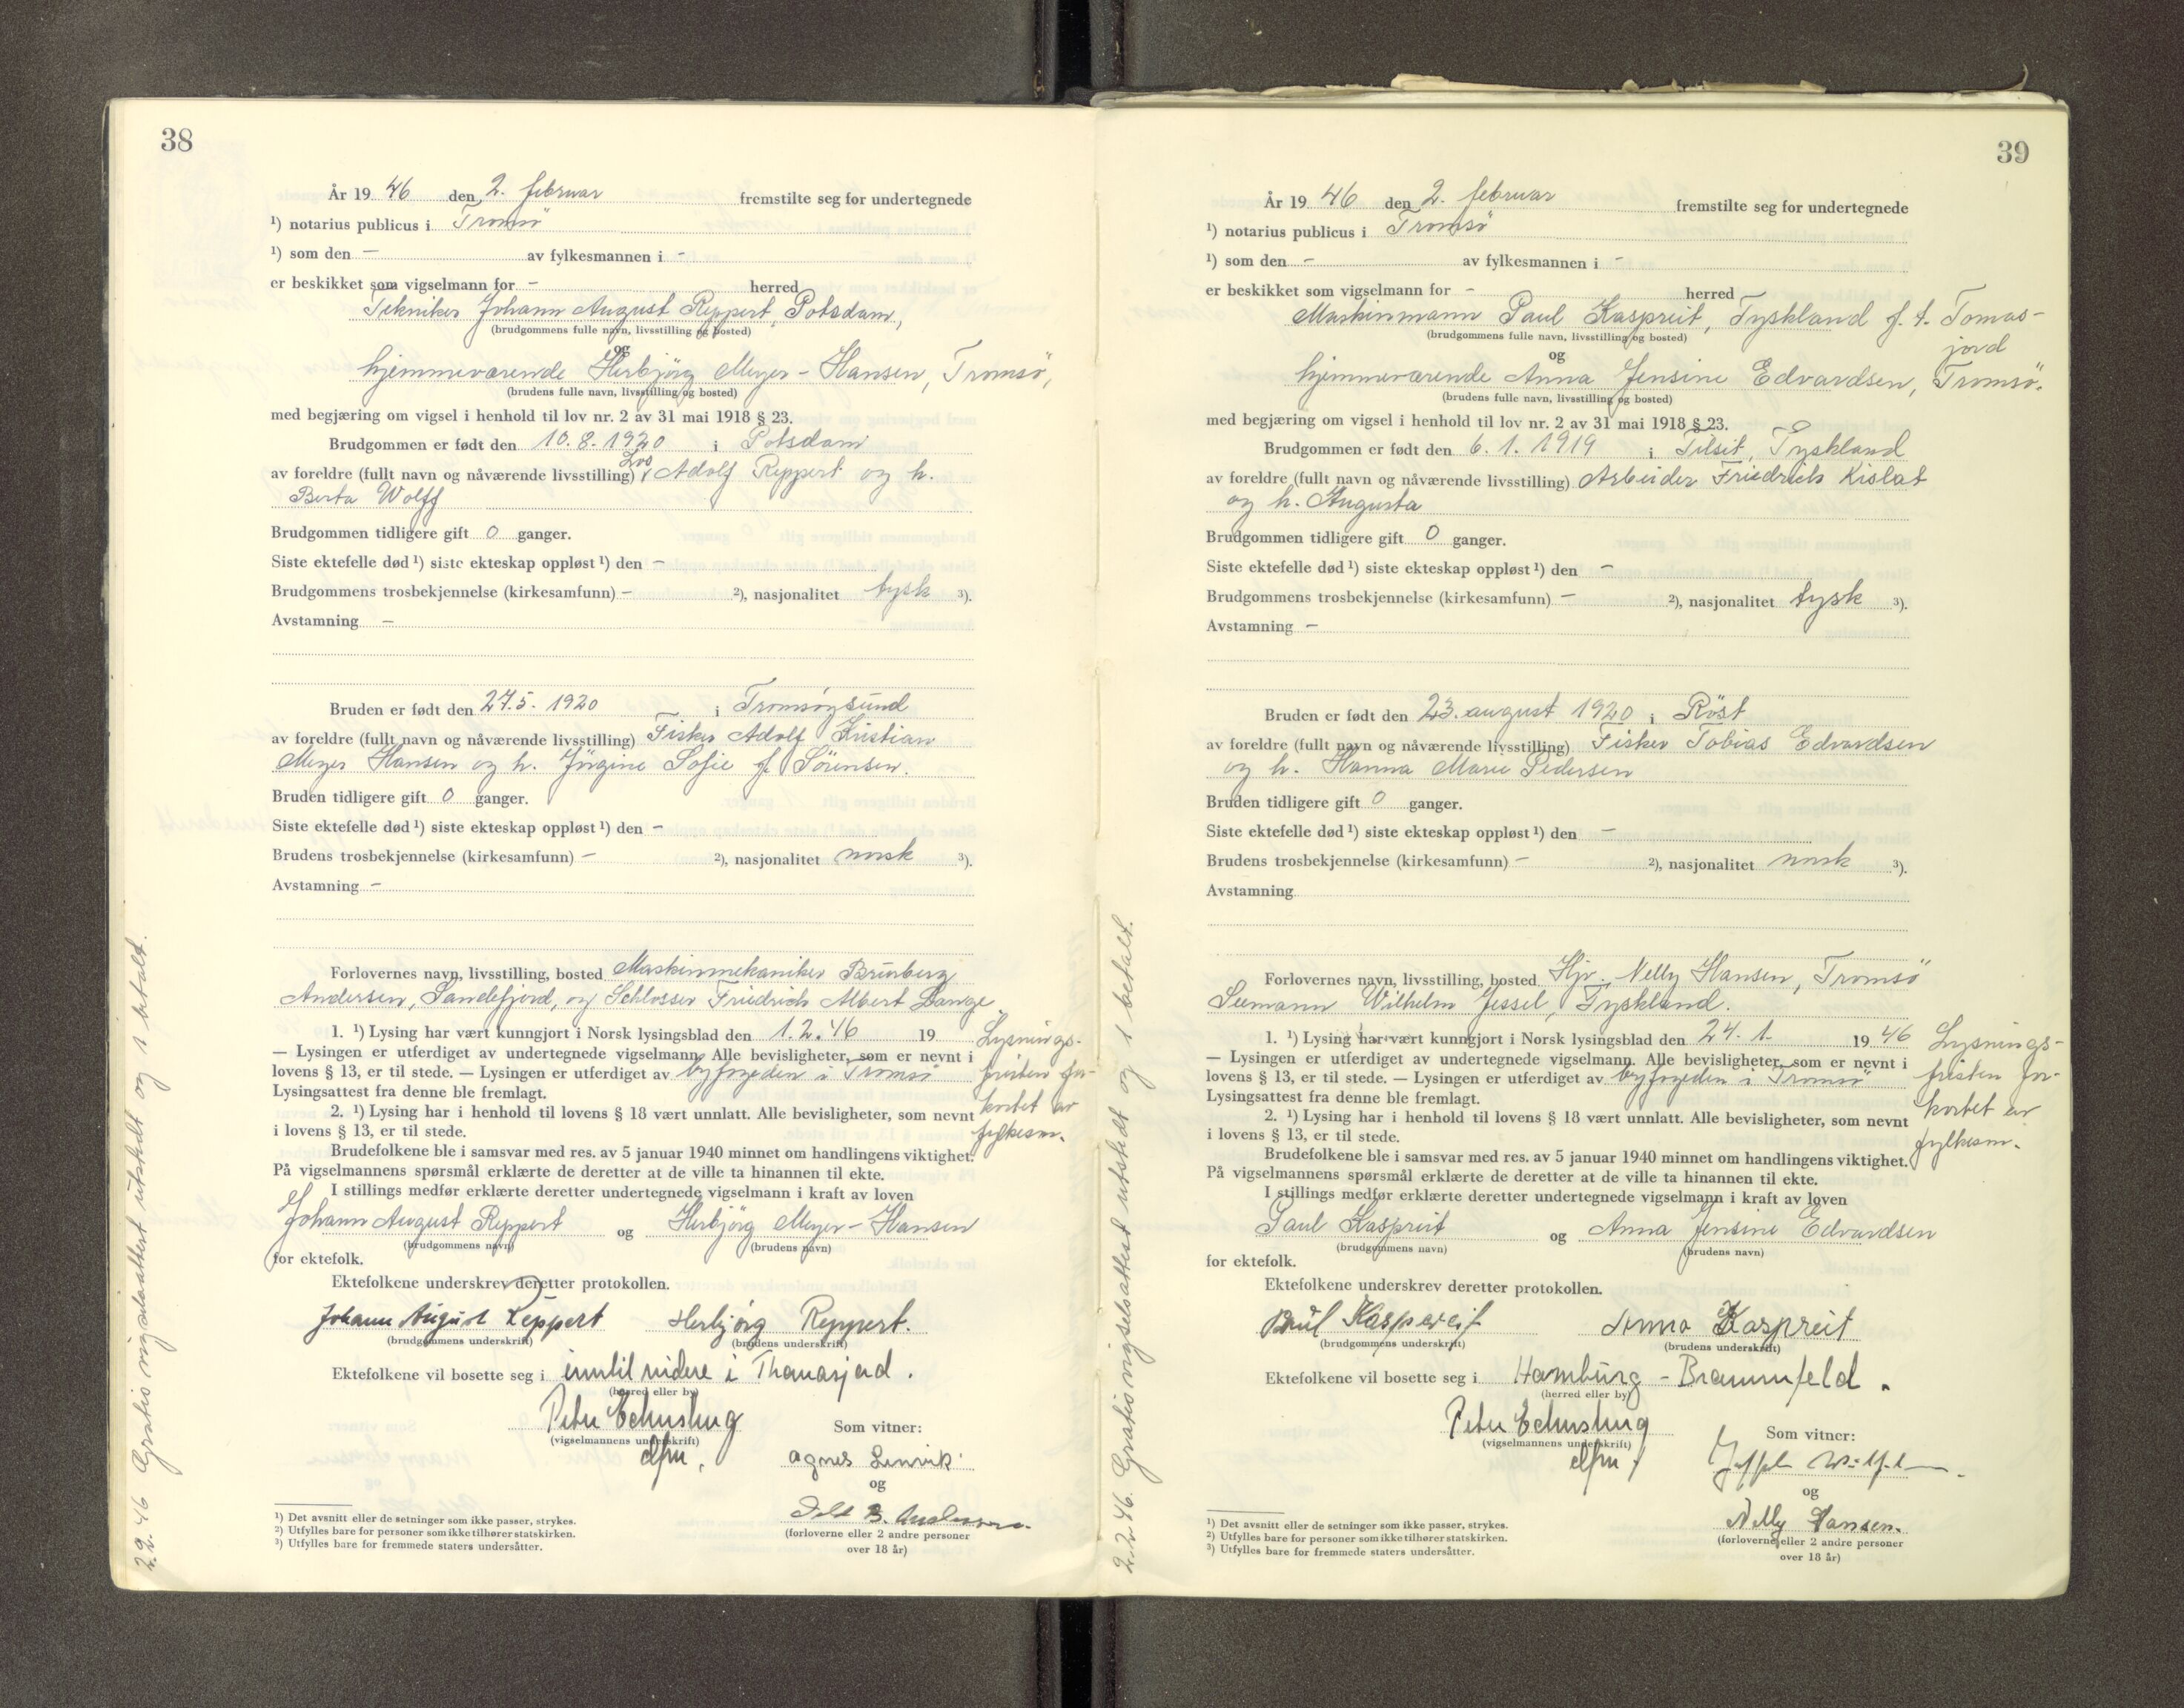 38
År 19 46 den 2. februar fremstilte seg for undertegnede
¹) notarius publicus i Tromsö
¹) som den – av fylkesmannen i –
er beskikket som vigselmann for – herred
Tekniker Johann August Reppert, Potsdam,
(brudgommens fulle navn, livsstilling og bosted)
og
hjemmeværende Herbjörg Meyer-Hansen, Tromsö,
(brudens fulle navn, livsstilling og bosted)
med begjæring om vigsel i henhold til lov nr. 2 av 31 mai 1918 § 23.
Brudgommen er født den 10.8.1920 i Potsdam
av foreldre (fullt navn og nåværende livsstilling) Adolf Reppert og h.
Berta Wolff
Brudgommen tidligere gift 0 ganger.
Siste ektefelle død ¹) siste ekteskap oppløst ¹) den –
Brudgommens trosbekjennelse (kirkesamfunn) – ²), nasjonalitet tysk ³).
Avstamning –
Bruden er født den 27.5.1920 i Tromsöysund
av foreldre (fullt navn og nåværende livsstilling) Fisker Adolf Kristian
Meyer Hansen og h. Jörgine Sofie f. Sörensen.
Bruden tidligere gift 0 ganger.
Siste ektefelle død ¹) siste ekteskap oppløst ¹) den –
Brudens trosbekjennelse (kirkesamfunn) – ²), nasjonalitet norsk ³).
Avstamning –
Forlovernes navn, livsstilling, bosted Maskinmekaniker Brunberg
Andersen, Sandefjord, og Schlosser Friedrich Albert Lange
1. ¹) Lysing har vært kunngjort i Norsk lysingsblad den 1.2.46 19
— Lysingen er utferdiget av undertegnede vigselmann. Alle bevisligheter, som er nevnt i
lovens § 13, er til stede. — Lysingen er utferdiget av byfogden i Tromsö
Lysingsattest fra denne ble fremlagt.
2. ¹) Lysing har i henhold til lovens § 18 vært unnlatt. Alle bevisligheter, som nevnt
i lovens § 13, er til stede.
Lysnings-
fristen for-
kortet av
fylkesm.
Brudefolkene ble i samsvar med res. av 5 januar 1940 minnet om handlingens viktighet.
På vigselmannens spørsmål erklærte de deretter at de ville ta hinannen til ekte.
I stillings medfør erklærte deretter undertegnede vigselmann i kraft av loven
Johann August Reppert og Herbjörg Meyer-Hansen
(brudgommens navn) (brudens navn)
for ektefolk.
Ektefolkene underskrev deretter protokollen.
Johann August Reppert Herbjørg Reppert.
(brudgommens underskrift) (brudens underskrift)
Ektefolkene vil bosette seg i inntil videre i Thomasjord.
(herred eller by)
Peter
(vigselmannens underskrift)
Som vitner:
Agnes Lenvik
og
B. Andersen
(forloverne eller 2 andre personer
over 18 år)
¹) Det avsnitt eller de setninger som ikke passer, strykes.
²) Utfylles bare for personer som ikke tilhører statskirken.
³) Utfylles bare for fremmede staters undersåtter.
2.2.46 Gratis vigselsattest utstedt og 1 betalt.
39
År 19 46 den 2. februar fremstilte seg for undertegnede
¹) notarius publicus i Tromsö
¹) som den – av fylkesmannen i –
er beskikket som vigselmann for – herred
Maskinmann Paul Kaspreit, Tyskland f. t. Tomas-
jord
(brudgommens fulle navn, livsstilling og bosted)
og
hjemmeværende Anna Jensine Edvardsen, Tromsö.
(brudens fulle navn, livsstilling og bosted)
med begjæring om vigsel i henhold til lov nr. 2 av 31 mai 1918 § 23.
Brudgommen er født den 6.1.1919 i Tilsit, Tyskland
av foreldre (fullt navn og nåværende livsstilling) Arbeider Friedrich Kislat
og h. Augusta
Brudgommen tidligere gift 0 ganger.
Siste ektefelle død ¹) siste ekteskap oppløst ¹) den –
Brudgommens trosbekjennelse (kirkesamfunn) – ²), nasjonalitet tysk ³).
Avstamning –
Bruden er født den 23. august 1920 i Röst
av foreldre (fullt navn og nåværende livsstilling) Fisker Tobias Edvardsen
og h. Hanna Marie Pedersen
Bruden tidligere gift 0 ganger.
Siste ektefelle død ¹) siste ekteskap oppløst ¹) den –
Brudens trosbekjennelse (kirkesamfunn) – ²), nasjonalitet norsk ³).
Avstamning
Forlovernes navn, livsstilling, bosted Hjv. Nelly Hansen, Tromsö
Seemann Wilhelm Jessel, Tyskland.
1. ¹) Lysing har vært kunngjort i Norsk lysingsblad den 24.1. 19 46
— Lysingen er utferdiget av undertegnede vigselmann. Alle bevisligheter, som er nevnt i
lovens § 13, er til stede. — Lysingen er utferdiget av byfogden i Tromsö
Lysingsattest fra denne ble fremlagt.
2. ¹) Lysing har i henhold til lovens § 18 vært unnlatt. Alle bevisligheter, som nevnt
i lovens § 13, er til stede.
Lysnings-
fristen for-
kortet av
fylkesm.
Brudefolkene ble i samsvar med res. av 5 januar 1940 minnet om handlingens viktighet.
På vigselmannens spørsmål erklærte de deretter at de ville ta hinannen til ekte.
I stillings medfør erklærte deretter undertegnede vigselmann i kraft av loven
Paul Kaspreit og Anna Jensine Edvardsen
(brudgommens navn) (brudens navn)
for ektefolk.
Ektefolkene underskrev deretter protokollen.
Paul Kaspereit Anna Kaspreit
(brudgommens underskrift) (brudens underskrift)
Ektefolkene vil bosette seg i Hamburg - Brammfeld.
(herred eller by)
Peter
(vigselmannens underskrift)
Som vitner:
og
Nelly Hansen.
(forloverne eller 2 andre personer
over 18 år)
¹) Det avsnitt eller de setninger som ikke passer, strykes.
²) Utfylles bare for personer som ikke tilhører statskirken.
³) Utfylles bare for fremmede staters undersåtter.
2.2.46. Gratis vigselsattest utstedt og 1 betalt.